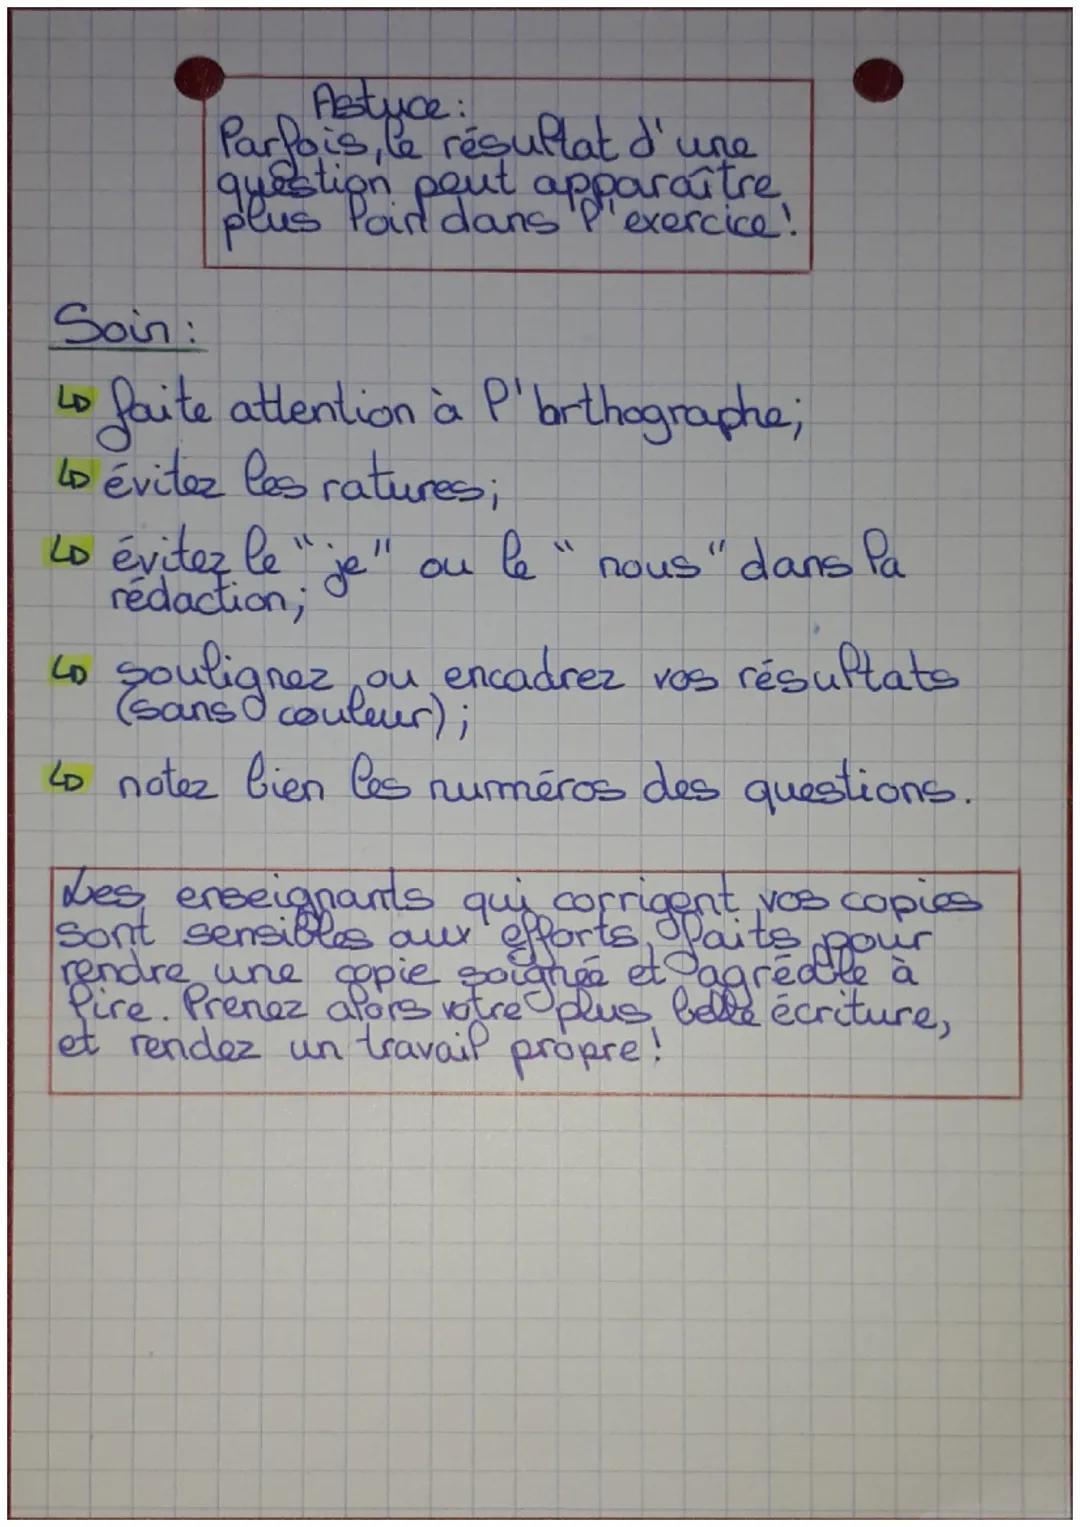 Astuce :
Parfois, le résultat d'une
question peut apparaître
plus loin dans l'exercice !
Soin :
↳ faite attention à l'orthographe ;
↳ évitez les ratures ;
↳ évitez le "je" ou le "nous" dans la
rédaction ;
↳ soulignez ou encadrez vos résultats
(sans couleur) ;
↳ notez bien les numéros des questions.
Les enseignants qui corrigent vos copies
sont sensibles aux efforts faits pour
rendre une copie soignée et agréable à
lire. Prenez alors votre plus belle écriture,
et rendez un travail propre !